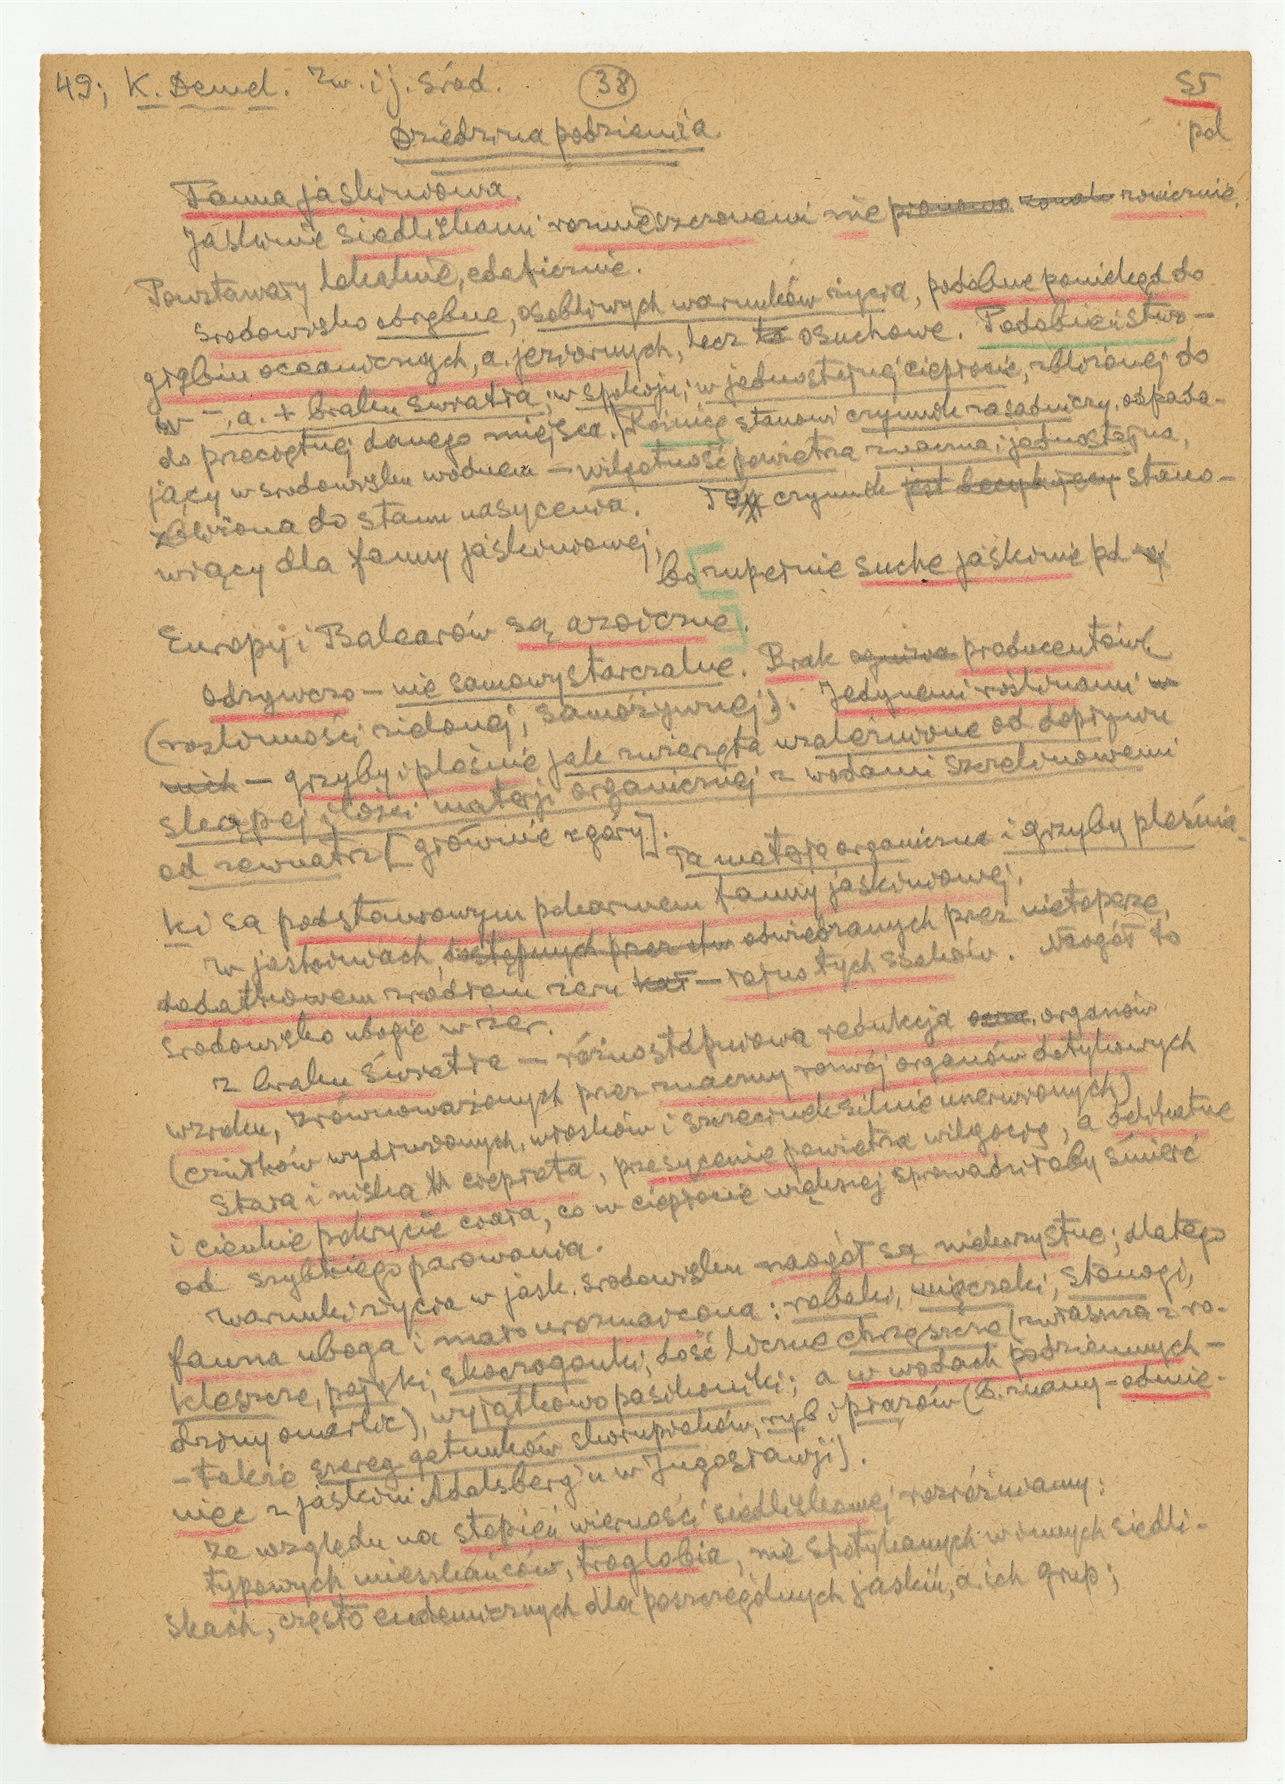 49; K. Demel. Zw. i j. środ. 38 55
pol
Dziedzina podziemia
Fauna jaskiniowa.
Jaskinie siedliskami rozmieszczonemi nie pionowo zonalnie,
Powstawały lokalnie, edaficznie.
środowisko odrębne, osobliwych warunków życia, podobne poniekąd do
głębin oceanicznych, a. jeziornych, lecz to osuchowe. Podobieństwo –
w –, a. + braku światła; w spokoju; w jednostajnej ciepłocie, zbliżonej do
do przeciętnej danego miejsca. Różnicę stanowi czynnik zasadniczy, odpada-
jący w środowisku wodnem – wilgotność powietrza znaczna, i jednostajna,
zbliżona do stanu nasycenia. Ten czynnik jest decydujący stano-
wiący dla fauny jaskiniowej,
bo zupełnie suche jaskinie pd
Europy i Balearów są azoiczne.
odżywczo – nie samowystarczalne. Brak ogniwa producentów
(roślinności zielonej, samożywnej). Jedynemi roślinami w
nich – grzyby i pleśnie jak zwierzęta uzależnione od dopływu
skąpej ilości materji organicznej z wodami szczelinowemi
od zewnątrz [głównie z góry].
Ta materja organiczna i grzyby pleśnia-
ki są podstawowym pokarmem fauny jaskiniowej.
W jaskiniach, dostępnych przez odwiedzanych przez nietoperze,
dodatkowem źródłem żeru – łajno tych ssaków. Naogół to
środowisko ubogie w żer.
Z braku światła – różnostopniowa redukcja organów
wzroku, zrównoważonych przez znaczny rozwój organów dotykowych
(czułków wydłużonych, włosków i szczecinek silnie unerwionych)
Stała i niska ciepłota, przesycenie powietrza wilgocią, a delikatne
i cienkie pokrycie ciała, co w ciepłocie większej sprowadziłoby śmierć
od szybkiego parowania.
Warunki życia w jask. środowisku naogół są niekorzystne; dlatego
fauna uboga i mało urozmaicona: robaki, mięczaki, stonogi,
kleszcze, pająki, skoczogonki, dość liczne chrząszcze (zwłaszcza z ro-
dziny omarlic), wyjątkowo pasikoniki; a w wodach podziemnych –
– także szereg gatunków skorupiaków, ryb i płazów (b. znany – odmie-
niec z jaskini Adelsberg'u w Jugosławji).
Ze względu na stopień wierności siedliskowej rozróżniamy:
typowych mieszkańców, troglobia, nie spotykanych w innych siedli-
skach, często endemicznych dla poszczególnych jaskiń, a. ich grup;